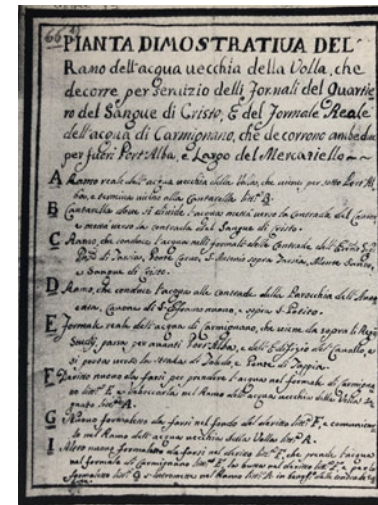 66
PIANTA DIMOSTRATIUA DEL
Ramo dell'acqua uecchia della Volla, che
decorre per seruizio delli Jormali del Quartie-
ro del Sangue di Cristo, E del Jormale Reale
dell'acqua di Carmignano, che decorrono ambedue
per fuori Port'Alba, e Largo del Mercatiello
A Ramo reale dell'acqua uecchia della Volla, che uiene per sotto Port'Al-
ba, e termina uicino alla Cantarella litt.ª B.
B Cantarella doue si diuide l'acqua metà uerso la Contrada del
e metà uerso la contrada del Sangue di Cristo.
C Ramo, che conduce l'acqua nelli formali delle Contrade dell'
S. Antonio sopra
e Sangue di Cristo.
D Ramo, che conduce l'acqua alle contrade della Parocchia dell'
nuouo, e sopra S. Potito.
E Jormale reale dell'acqua di Carmignano, che uiene da sopra li Regi
Studj, passa per auanti Port'Alba, e dell'Edificio del Cauallo, e
si porta uerso la strada di Toledo, e Ponte di Tappia.
F Deritto nuouo da farsi per prendere l'acqua nel formale di Carmigna-
no litt.ª E, e nel Ramo dell'acqua uecchia della Volla
litt.ª A.
G Nuouo formaletto da farsi nel fondo del deritto litt.ª F, e comunicar-
lo nel Ramo dell'acqua uecchia della Volla litt.ª A.
I Altro nuouo formaletto da farsi nel deritto litt.ª F, che prende l'acqua
nel formale di Carmignano litt.ª E, nel deritto litt.ª F, e
formaletto G nel Ramo litt.ª A in